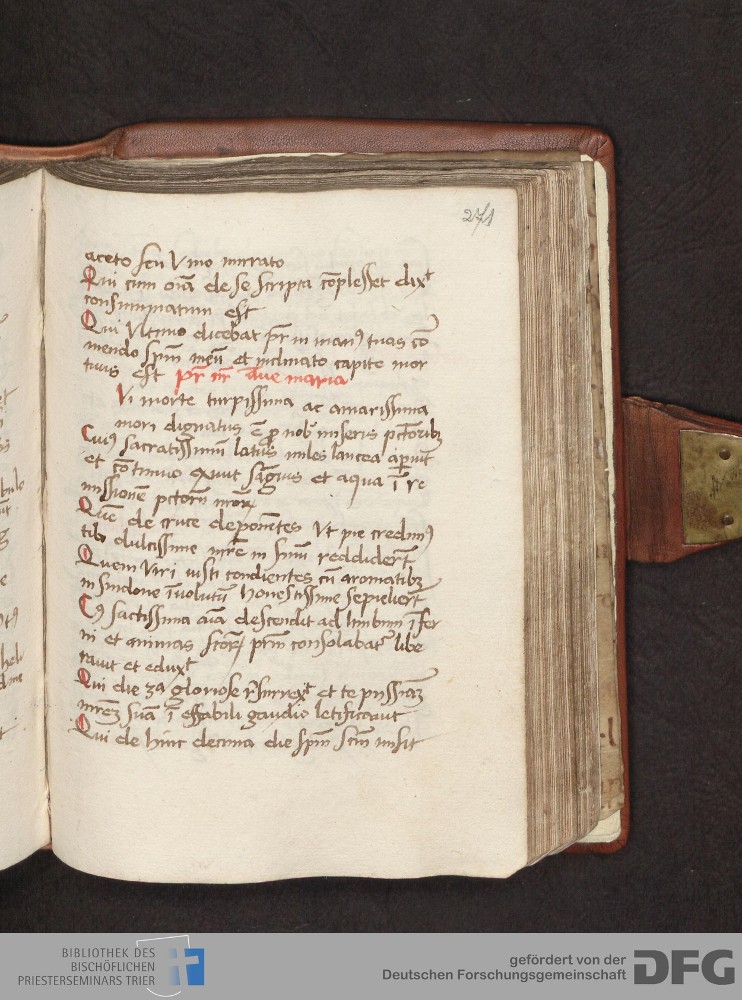 271
aceto seu Vino mirrato
Qui cum oı̄a de se scripta cōplesset dixᵗ
consummatum est
Qui Vltimo dicebat pr̄ in manꝰ tuas cō
mendo spm̄ meū et inclinato capite mor
tuus est pr̄ nr̄ Aue maria
Vi morte turpissima ac amarissima
mori dignatus ē ꝓ nobˢ miseris pctōribꝫ
Cuiꝰ sacratissimū latus miles lancea apuit
et cōtinuo exiuit sāguis et aqua ī re
missionē pctorū nrōꝝ
Quē de cruce deponētes Vt pie credimꝰ
tibi dulcissime mr̄e in sinū reddiderūt
Quem Viri iusti condientes cū aromatibꝫ
in sindone īuolutū honestissime sepelierūt
Cꝰ sāctissima aīa descendit ad limbum īfer
ni et animas scōꝝ prm̄ consolabatʳ libe
rauit et eduxᵗ
Qui die 3ª gloriose rˢurrexᵗ et te pijssimāꝫ
mrēꝫ suā ī effabili gaudio letificauit
Qui de hinc decima die spm̄ scm̄ misit
BIBLIOTHEK DES
BISCHÖFLICHEN
PRIESTERSEMINARS TRIER
gefördert von der
Deutschen Forschungsgemeinschaft
DFG